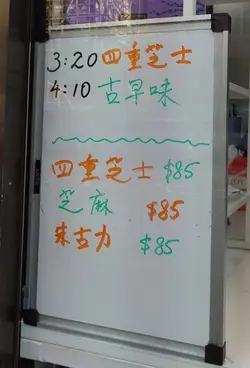 3:20 四重芝士
4:10 古早味
四重芝士 $85
芝麻 $85
朱古力 $85